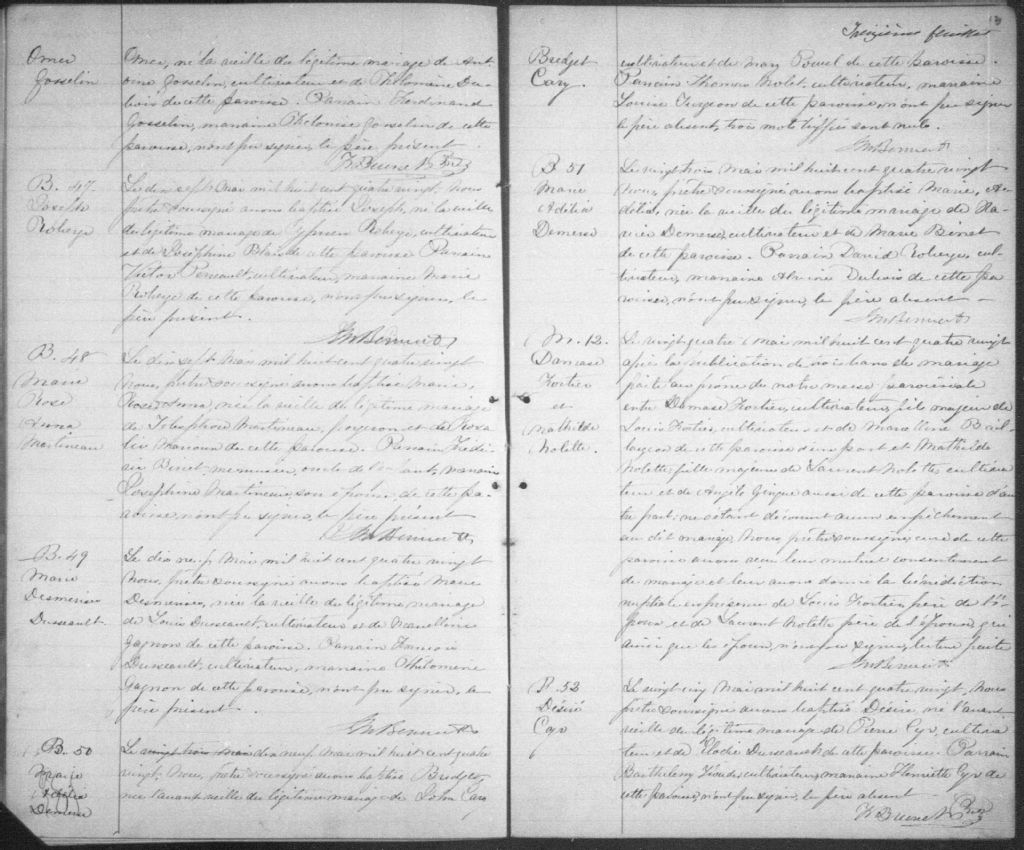 Omer
Gosselin
Omer, né la veille du légitime mariage de Ant
oine Gosselin, cultivateur et de Philomène Du
bois de cette paroisse. Parrain Ferdinand
Gosselin, marraine Philomise Gosselin de cette
paroisse, n'ont pu signer, le père présent.
B. 47
Joseph
Roberge
Le dix sept Mai mil huit cent quatre vingt, Nous
prêtre soussigné avons baptisé Joseph, né la veille
du légitime mariage de Cyprien Roberge, cultivateur
et de Joséphine Blais de cette paroisse Parrain
Victor cultivateur, marraine Marie
Roberge de cette paroisse, n'ont pu signer, le
père présent.
B. 48
Marie
Rose
Anna
Martineau
Le dix sept Mai mil huit cent quatre vingt
Nous, prêtre soussigné avons baptisé Marie,
Rose, Anna, née la veille du légitime mariage
de Télesphore Martineau, forgeron et de Rosa
lie de cette paroisse. Parrain Frédé
ric Binet menuisier, oncle de l'enfant, marraine
Joséphine Martineau, son épouse de cette pa-
roisse, n'ont pu signer, le père présent
B. 49
Marie
Desmerises
Dussault
Le dix neuf Mai mil huit cent quatre vingt
Nous, prêtre soussigné avons baptisé Marie
Desmerises, née la veille du légitime mariage
de Louis Dussault, cultivateur et de Marcelline
Gagnon de cette paroisse. Parrain François
Dussault, cultivateur, marraine Philomène
Gagnon de cette paroisse, n'ont pu signer, le
père présent.
B. 50
Marie
Adélia
Demerse
Le vingt trois Mai dix neuf Mai mil huit cent quatre
vingt, Nous, prêtre soussigné avons baptisé Bridget,
née l'avant veille du légitime mariage de John Cary
13
Treizième feuillet
Bridget
Cary.
cultivateur et de Mary Powel de cette paroisse.
Parrain Thomas Nolet, cultivateur, marraine
Louise Turgeon de cette paroisse n'ont pu signer
le père absent, trois mots biffés sont nuls.
B 51
Marie
Adélia
Demerse
Le vingt trois Mai mil huit cent quatre vingt
Nous, prêtre soussigné avons baptisé Marie, A-
délia, née la veille du légitime mariage de Xa-
vier Demerse, cultivateur et de Marie Binet
de cette paroisse. Parrain David Roberge, cul-
tivateur, marraine Dubois de cette pa
roisse, n'ont pu signer, le père absent
M. 12
Damase
Fortier
et
Mathilde
Nolette.
Le vingt quatre Mai mil huit cent quatre vingt
après la publication de trois bans de mariage
faite au prône de notre messe paroissiale
entre Damase Fortier, cultivateur, fils majeur de
Louis Fortier, cultivateur et de Marcelline Bail-
largeon de cette paroisse d'une part et Mathilde
Nolette fille majeure de Laurent Nolette, cultiva
teur et de Angèle Gingue aussi de cette paroisse d'au
tre part: ne s'étant découvert aucun empêchement
au dit mariage, Nous, prêtre soussigné, curé de cette
paroisse avons reçu leur mutuel consentement
de mariage et leur avons donné la bénédiction
nuptiale en présence de Louis Fortier, père de l'é-
poux, et de Laurent Nolette père de l'épouse, qui
ainsi que les époux, n'ont pu signer, lecture faite
B. 52
Désiré
Cyr
Le vingt cinq Mai mil huit cent quatre vingt, Nous
prêtre soussigné avons baptisé Désiré, né l'avant
veille du légitime mariage de Pierre Cyr, cultiva
teur et de Elodie Dussault de cette paroisse. Parrain
Barthélemy cultivateur, marraine Henriette Cyr de
cette paroisse, n'ont pu signer, le père absent